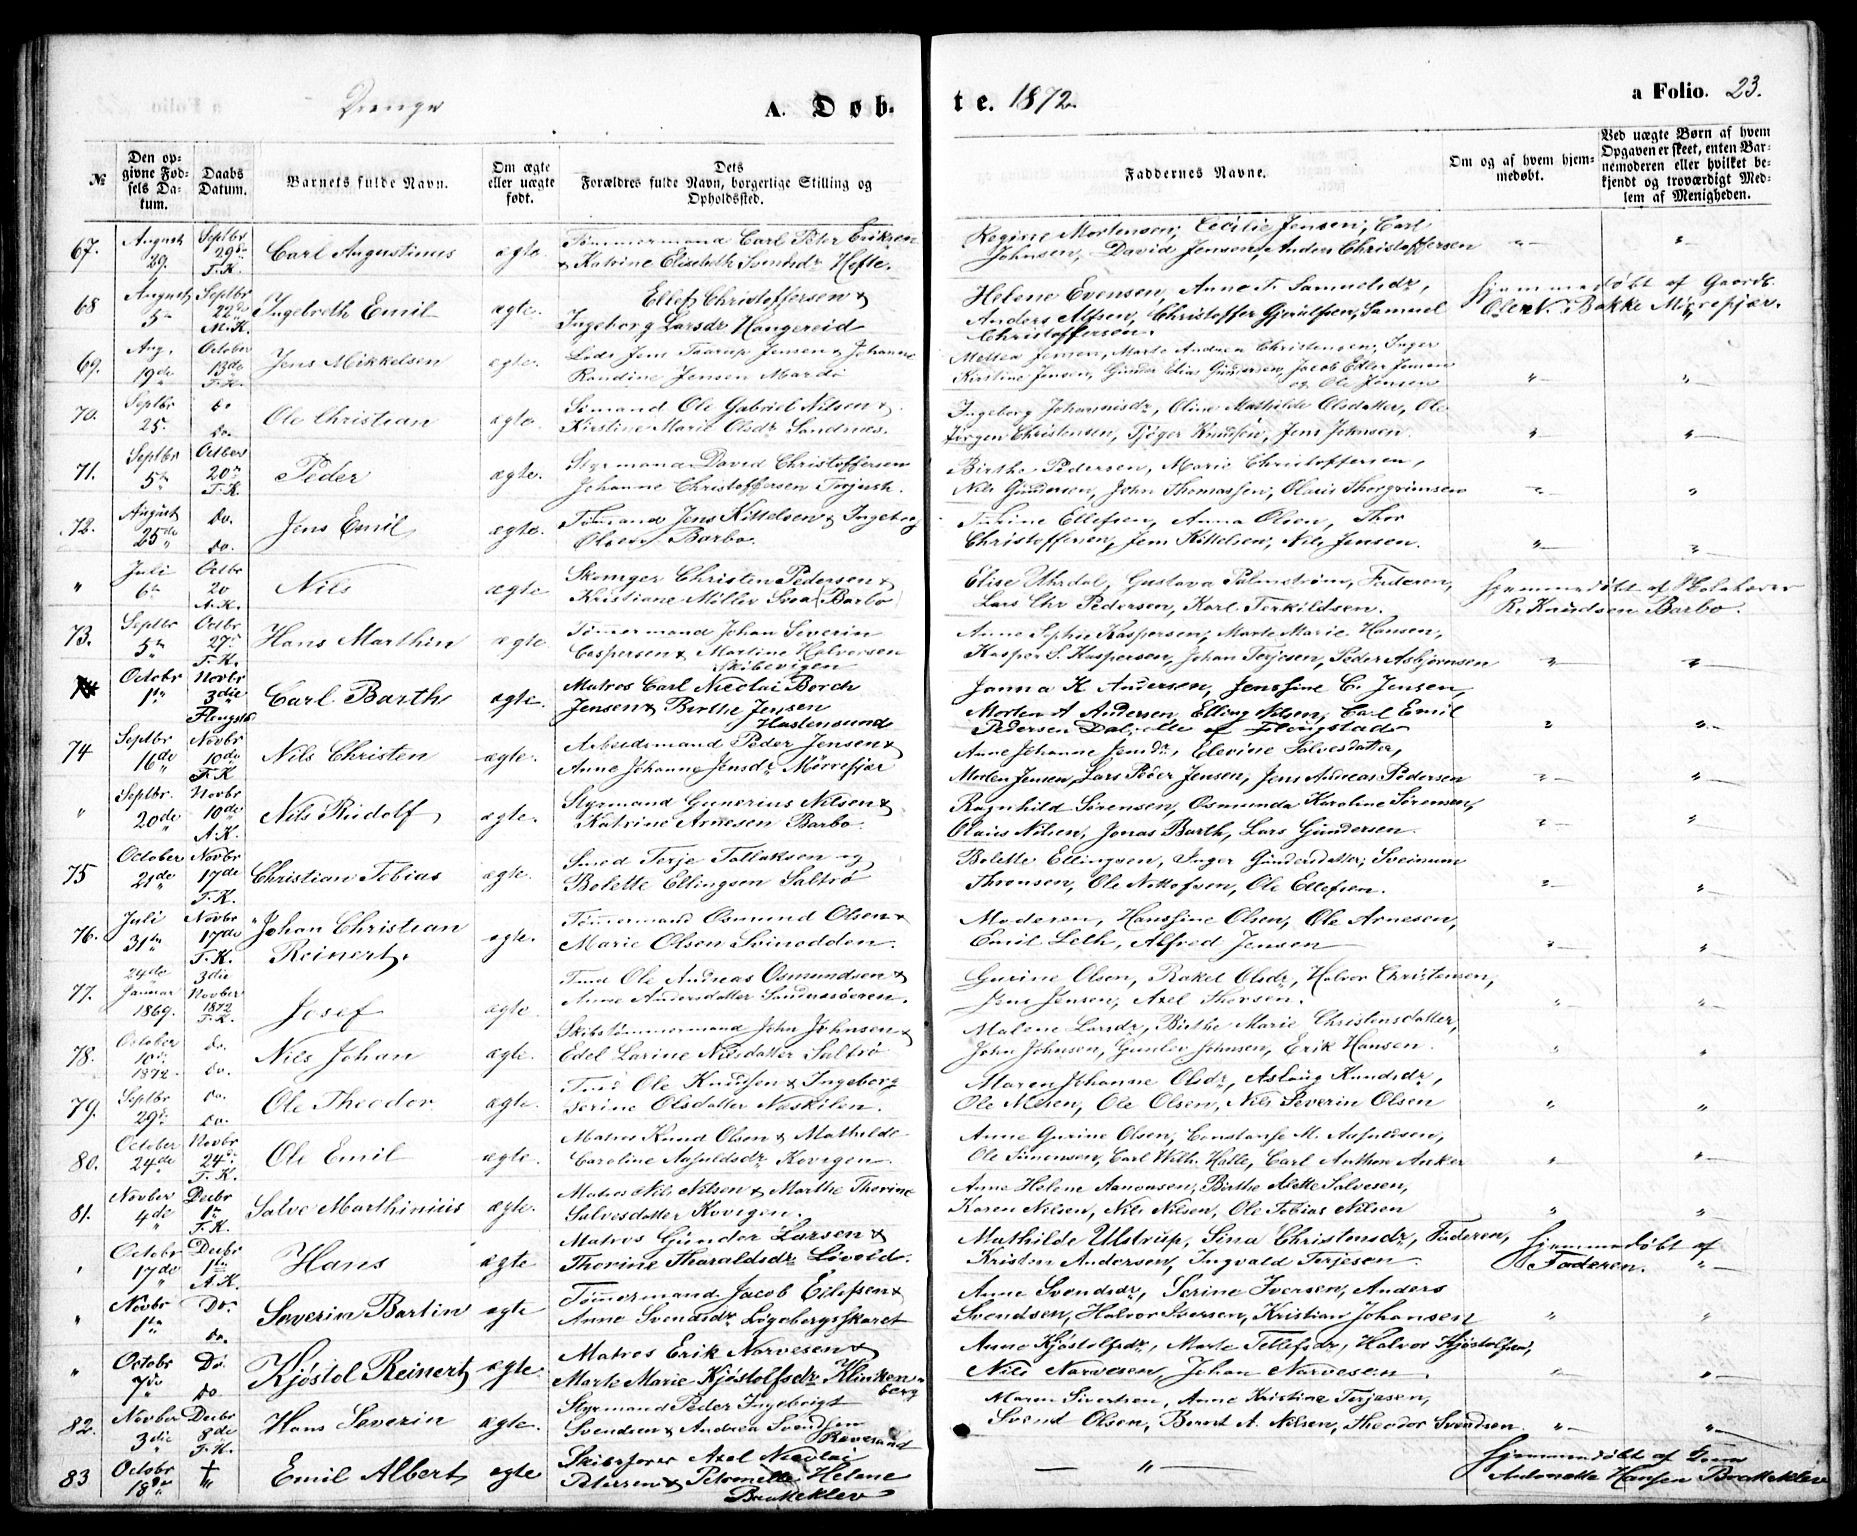 Drenge
A. Døb-
te. 1872.
a Folio. 23.
№
Den op-
givne Fød-
sels Da-
tum.
Daabs
Datum.
Barnets fulde Navn.
Om ægte
eller uægte
født.
Dets
Forældres fulde Navn, borgerlige Stilling og
Opholdssted.
Faddernes Navne.
Om og af hvem hjem-
medøbt.
Ved uægte Børn af hvem
Opgaven er skeet, enten Bar-
nemoderen eller hvilket be-
kjendt og troværdigt Med-
lem af Menigheden.
67. August 29. Septbr 29de F.K. Carl Augustinus ægte. Tømmermand Carl Peter Eriksen
& Katrine Elisabeth Svendsdr Hofte.
Regine Mortensen, Cecilie Jensen, Carl
Johnsen, David Jensen, Anders Christoffersen
68 August 5te Septbr 22de M.K. Ingebreth Emil ægte. Ellef Christoffersen &
Ingeborg Larsdr Hangereid
Helene Evensen, Anne T. Samuelsdr,
Anders Alfsen, Christoffer Gjerulfsen, Samuel
Christoffersen.
Hjemmedøbt af Gaardb.
Ole N. Bakke Mørefjær.
69. Aug. 19de October 13de F.K. Jens Mikkelsen ægte. Lods Jens Taarup Jensen & Johanne
Randine Jensen Mardø
Mettea Jensen, Marte Andrea Christensen, Inger
Kirstine Jensen, Gunder Elias Gundersen, Jacob Edler Jensen
og Ole Jensen
70. Septbr 25. Do Do. Ole Christian ægte. Sømand Ole Gabriel Nilsen &
Kirstine Marie Olsdr Sandnæs.
Ingeborg Johannisdr, Oline Mathilde Olsdatter, Ole
Jørgen Christensen, Tjøger Knudsen, Jens Johnsen.
71. Septbr 5te October 20de F.K. Peder ægte. Styrmand David Christoffersen
Johanne Christoffersen
Birthe Pedersen, Marie Christoffersen,
Nils Gundersen, John Thomassen, Olaus Thorgrimsen
72. August 25de Do. Do. Jens Emil ægte. Tømmand Jens Kittelsen & Ingeborg
Olsen Barbo.
Ellefsen, Anna Olsen, Thor
Christoffersen, Jens Kittelsen, Nils Jensen.
" Juli 6te Octbr 20 A.K. Nils ægte Christen Pedersen &
Kristiane Møller Barbo
Elise Uhrdal, Gustava Palmstrøm, Faderen,
Lars Chr Pedersen, Karl Terkildsen.
Hjemmedøbt af Skolelærer
K. Knudsen Barbo.
73. Septbr 5te Octbr 27de F.K. Hans Marthin ægte. Tømmermand Johan Severin
Caspersen & Martine Halvorsen
Skibevigen
Anne Sophie Kaspersen, Marte Marie Hansen,
Kasper S. Kaspersen, Johan Terjesen, Peder Asbjørnsen
October 1te Novbr 3die Flougstd Carl Barth ægte. Matros Carl Nicolai Borch
Jensen & Birthe Jensen
Hastensund
Janna K Andersen, Jensine C. Jensen,
Morten A Andersen, Elling Nilsen, Carl Emil
Pedersen Dal, alle af Flougstad
74 Septbr 16de Novbr 10de F.K Nils Christen ægte. Arbeidsmand Peder Jensen &
Anne Johanne Jensdr Mørrefjær
Anne Johanne Jensdr, Elevine Salvesdatter,
Morten Jensen, Lars Peder Jensen, Jens Andreas Pedersen
" Septbr. 20de Novbr 10de A.K. Nils Rudolf ægte. Styrmand Gunerius Nilsen &
Katrine Arnesen Barbo.
Ragnhild Sørensen, Osmunda Karoline Sørensen,
Olaus Nilsen, Jonas Barth, Lars Gundersen.
75 October 21de Novbr 17de F.K. Christian Tobias ægte. Smed Terje Tallaksen og
Bolette Ellingsen Saltrø
Bolette Ellingsen, Inger Gundersdatter, Sveinum
Thronsen, Ole Nottofsen, Ole Ellefsen.
76. Juli 31te Novbr 17de F.K. Johan Christian
Reinert. ægte. Tømmermand Osmund Olsen &
Marie Olsen Svinodden.
Moderen, Hansine Olsen, Ole Arnesen,
Emil Leth, Alfred Jensen
77. 24de Januar 1869. 3die Novber 1872 F.K. Josef ægte Ole Andreas Osmundsen &
Anne Andersdatter Sandnæsøeren.
Gurine Olsen, Rakel Olsdr, Halvor Christensen,
Jens Jensen, Axel Thorsen.
78. October 10de 1872. Do. Do. Nils Johan ægte. Skibstømmermand John Johnsen &
Edel Larine Nilsdatter Saltrø
Malene Larsdr, Birthe Marie Christensdatter,
John Johnsen, Gunlev Johnsen, Erik Hansen.
79. Septbr 29de Do. Do. Ole Theodor ægte. Ole Knudsen & Ingeborg
Serine Olsdatter Næskilen.
Maren Johanne Olsdr, Aslaug Knudsdr,
Ole Nilsen, Ole Olsen, Nils Severin Olsen
80. October 24de Novbr 24de F.K. Ole Emil ægte. Matros Knud Olsen & Mathilde
Caroline Kovigen.
Anne Gurine Olsen, Constanse M.
Ole Simonsen, Carl Wilh. Holte, Carl Anthon Anker
81. Novber 4de Decbr 1te F.K. Salve Marthinius ægte. Matros Nils Nilsen & Marthe Thorine
Salvesdatter Kovigen.
Anne Helene Aanonsen, Birthe Alette Salvesen,
Karen Nilsen, Nils Nilsen, Ole Tobias Nilsen
Octobr 17de Decbr 1te A.K. Hans ægte Matros Gunder Larsen &
Thorine Tharaldsdr Løvold.
Mathilde Ulstrup, Sina Christensdr, Faderen,
Kristen Andersen, Ingvald Terjesen.
Hjemmedøbt af
Faderen.
" Novbr 1te Do. Do. Severin Bertin ægte Tømmermand Jacob Eilefsen &
Anne Svendsdr Løgebergsskaret
Anne Svendsdr, Serine Iversen, Anders
Svendsen, Halvor Iversen, Kristian Johansen
" Octobr 7de Do. Do Kjøstol Reinert ægte. Matros Erik Narvesen &
Marte Marie Kjøstolfsdr Klinken-
berg
Anne Kjøstolfsdr, Marte Tellefsdr, Halvor Kjøstolfsen,
Nils Narvesen, Johan Narvesen.
82. Novber 3die Decbr 8de F.K. Hans Severin ægte. Styrmand Peder Ingebrigt
Svendsen & Andrea Svendsen
Revesand
Maren Sivertsen, Anne Kristine Terjesen,
Svend Olsen, Bernt A. Nilsen, Theodor Svendsen
83 Octobr 18de † Emil Albert ægte Skibsfører Axel Nicolai
Petersen & Petronelle Helene
Bratteklev
Hjemmedøbt af
Antonette Hansen Bratteklev